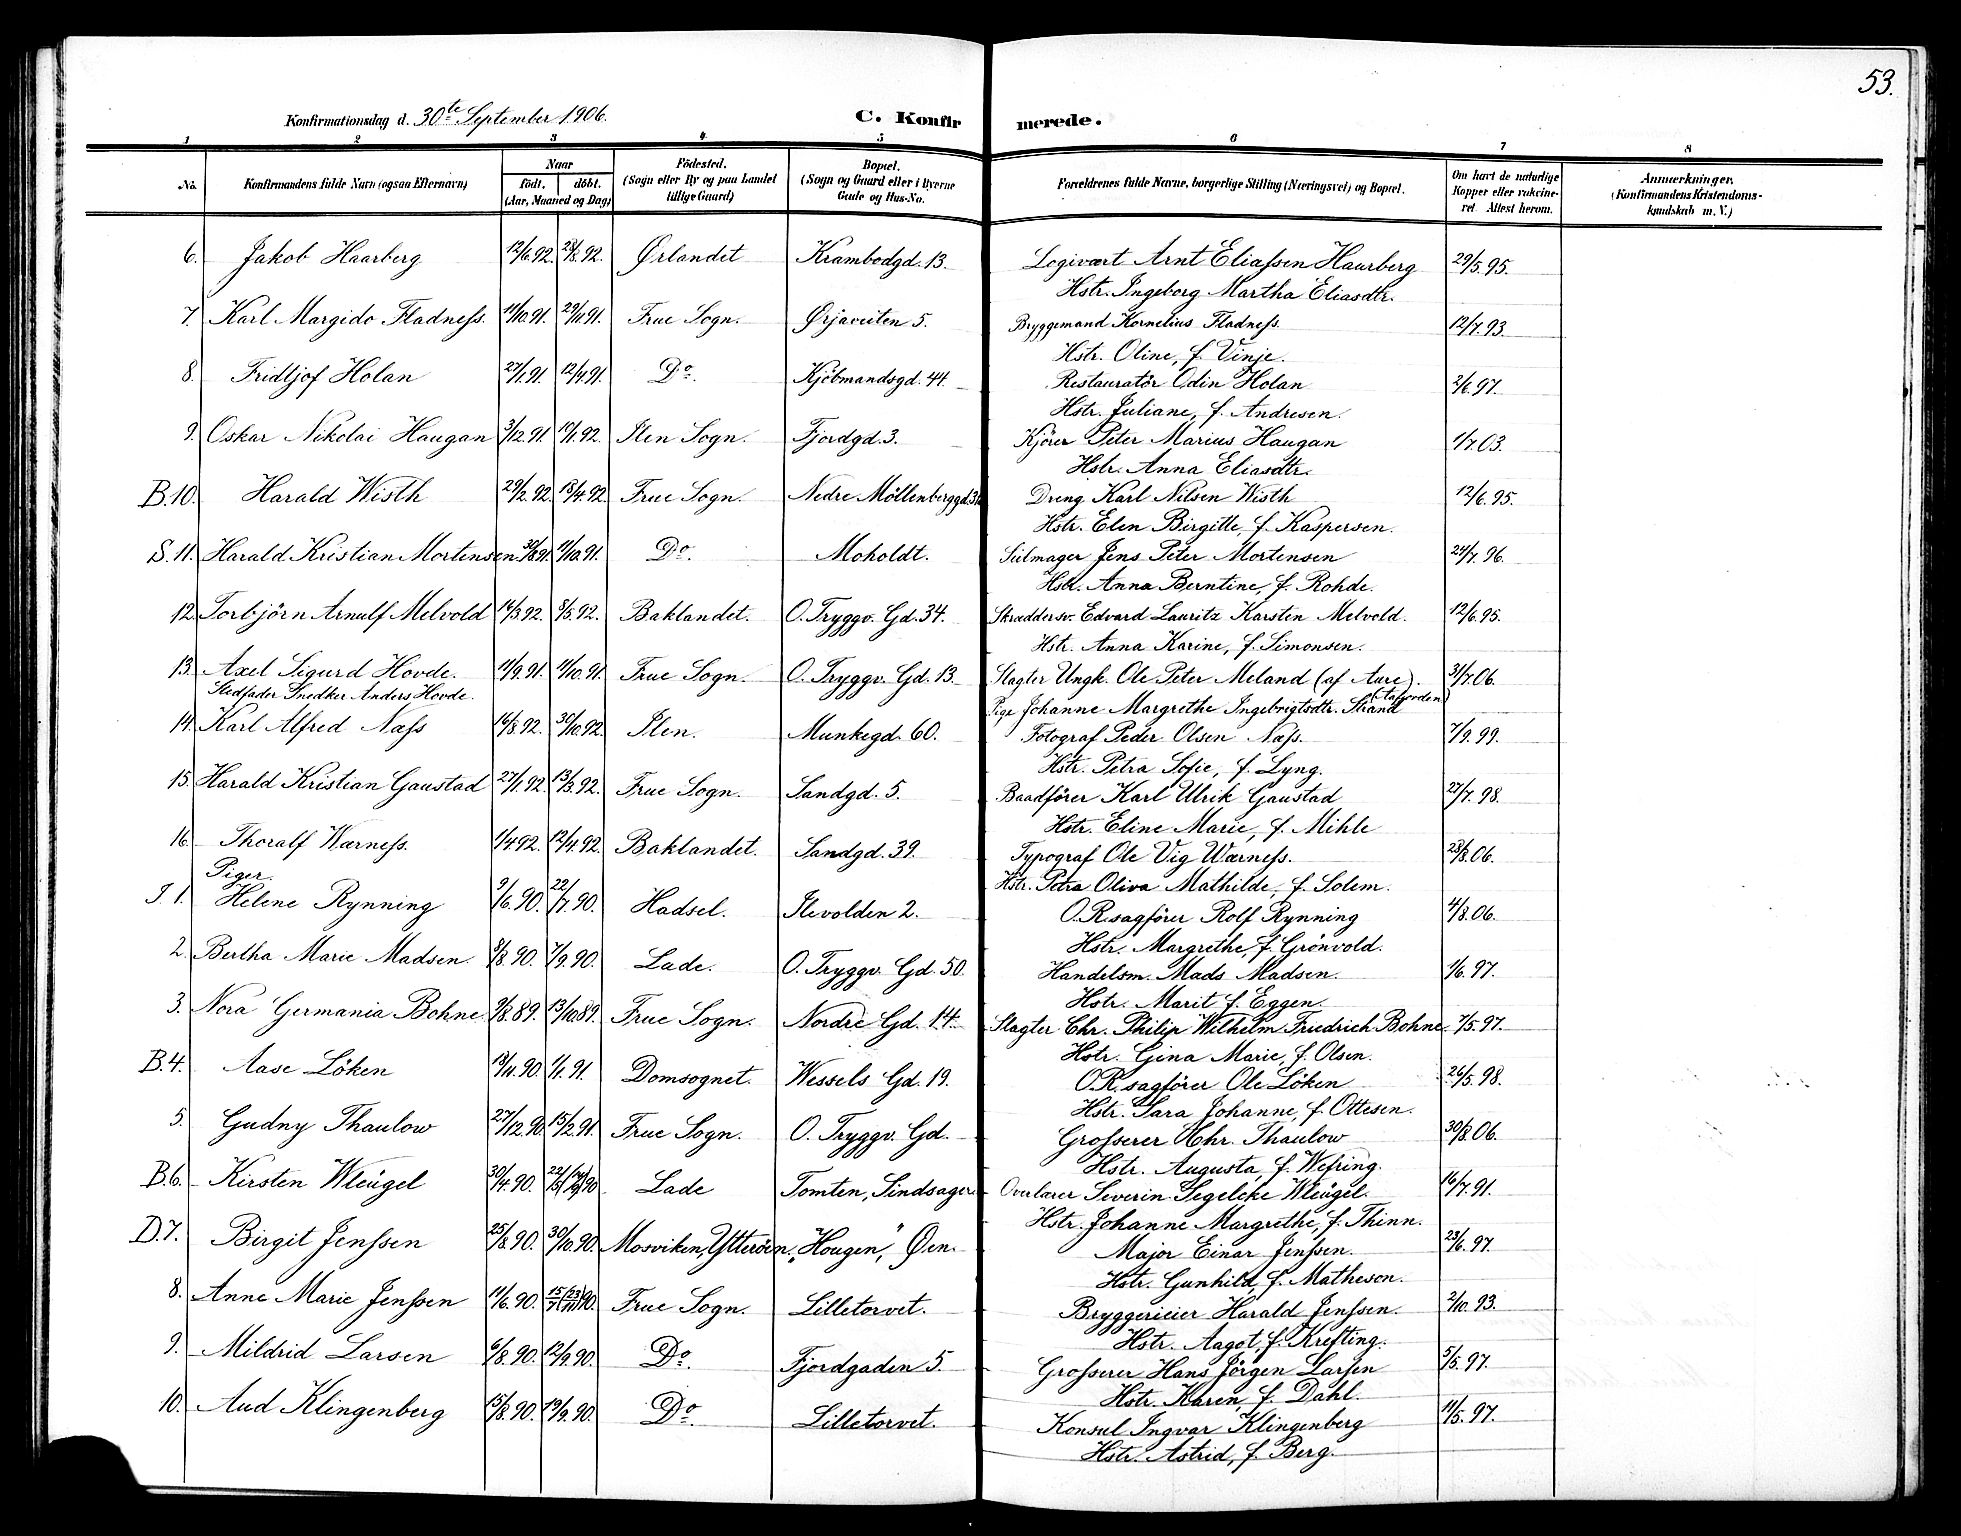 53.
Konfirmationsdag d. 30te September 1906. C. Konfir merede.
1 2 3 4 5 6 7 8
No. Konfirmandens fulde Navn (ogsaa Efternavn) Naar födt. döbt. (Aar, Maaned og Dag) Födested. (Sogn eller By og paa Landet tillige Gaard) Bopæl. (Sogn og Gaard eller i Byerne Gade og Hus-No. Forældrenes fulde Navne, borgerlige Stilling (Næringsvei) og Bopæl. Om havt de naturlige Kopper eller vakcineret. Attest herom. Anmærkninger. (Konfirmandens Kristendomskundskab m. V.)
6. Jakob Haarberg 12/6.92. 28/8.92. Ørlandet Krambodgd. 13. Logivært Arnt Eliassen Haarberg 29/5.95.
Hstr. Ingeborg Martha Eliasdtr.
7. Karl Margido Fladness. 11/10.91. 29/11.91. Frue Sogn. Ørjaveiten 5. Bryggemand Kornelius Fladness. 12/7.93.
Hstr. Oline, f. Vinje.
8. Fridtjof Holan 27/1.91. 12/4.91. Do. Kjöbmandsgd. 44. Restauratör Odin Holan 2/6.97.
Hstr. Juliane, f. Andresen.
9. Oskar Nikolai Haugan 3/12.91. 19/1.92. Ilen Sogn. Fjordgd. 3. Kjörer Peter Marius Haugan 1/7.03.
Hstr. Anna Eliasdtr.
B.10. Harald Wisth 29/2.92. 18/4.92. Frue Sogn. Nedre Möllenberggd. Dreng Karl Nilsen Wisth 12/6.95.
Hstr. Elen Birgitte, f. Kaspersen.
S.11. Harald Kristian Mortensen 30/8.91. 11/10.91. Do. Moholdt. Seilmager Jens Peter Mortensen 24/7.96.
Hstr. Anna Berntine, f. Rohde.
12. Torbjörn Arnulf Melvold 14/3.92. 8/5.92. Baklandet. O. Tryggv. Gd. 34. Skræddersv. Edvard Lauritz Karsten Melvold. 12/6.95.
Hstr. Anna Karine, f. Simonsen.
13. Axel Sigurd Hovde. 11/9.91. 11/10.91. Frue Sogn. O. Tryggv. Gd. 13. Slagter Ungk. Ole Peter Meland (af Aure). 31/7.06.
Stedfader Snedker Anders Hovde. Pige Johanne Margrethe Ingebrigtsdtr. Strand
14. Karl Alfred Næss 16/8.92. 30/10.92. Ilen. Munkegd. 60. Fotograf Peder Olsen Næss. 7/9.99.
Hstr. Petra Sofie, f. Lyng.
15. Harald Kristian Gaustad 27/1.92. 13/3.92. Frue Sogn. Sandgd. 5. Baadförer Karl Ulrik Gaustad 27/7.98.
Hstr. Eline Marie, f. Mihle
16. Thoralf Wærness. 1/4 92. 12/4.92. Baklandet. Sandgd. 39. Typograf Ole Vig Wærness. 28/8.06.
Hstr. Petra Oliva Mathilde, f. Solem.
Piger.
I 1. Helene Rynning 9/6.90. 22/7.90. Hadsel. Ilevolden 2. O.R.sagförer Rolf Rynning 4/8.06.
Hstr. Margrethe, f. Grönvold.
2. Bertha Marie Madsen. 8/8.90. 7/9.90. Lade. O. Tryggv. Gd. 50. Handelsm. Mads Madsen. 1/6.97.
Hstr. Marit f. Eggen.
3. Nora Germania Bohne 9/8.89. 13/10.89. Frue Sogn. Nordre Gd. 14. Slagter Chr. Philip Wilhelm Friedrich Bohne. 7/5.97.
Hstr. Gina Marie, f. Olsen.
B.4. Aase Löken 18/11.90. 1/1.91. Domsognet. Wessels Gd. 19. O.R.sagförer Ole Löken 26/5.98.
Hstr. Sara Johanne, f. Ottesen.
5. Gudny Thaulow 27/12.90. 15/2.91. Frue Sogn. O. Tryggv. Gd. Grosserer Chr. Thaulow 30/8.06.
Hstr. Augusta, f. Wefring.
B.6. Kirsten Wleügel 30/4.90. Lade Tomten, Sindsager Overlærer Severin Segelcke Wleügel. 16/7.91.
Hstr. Johanne Margrethe, f. Thinn.
D.7. Birgit Jenssen 25/8.90. 30/10.90. Mosviken, Ytteröen. „Hougen," Øen. Major Einar Jenssen. 23/6.97.
Hstr. Gunhild, f. Matheson.
8. Anne Marie Jenssen 11/6.90. Frue Sogn. Lilletorvet. Bryggerieier Harald Jenssen. 2/10.93.
Hstr. Aagot, f. Krefting.
9. Mildrid Larsen 6/8.90. 12/9.90. Do. Fjordgaden 5. Grosserer Hans Jörgen Larsen 5/5.97.
Hstr. Karen, f. Dahl.
10. Aud Klingenberg 15/8.90. 19/9.90. Do. Lilletorvet. Konsul Ingvar Klingenberg 11/5.97.
Hstr. Astrid, f. Berg.